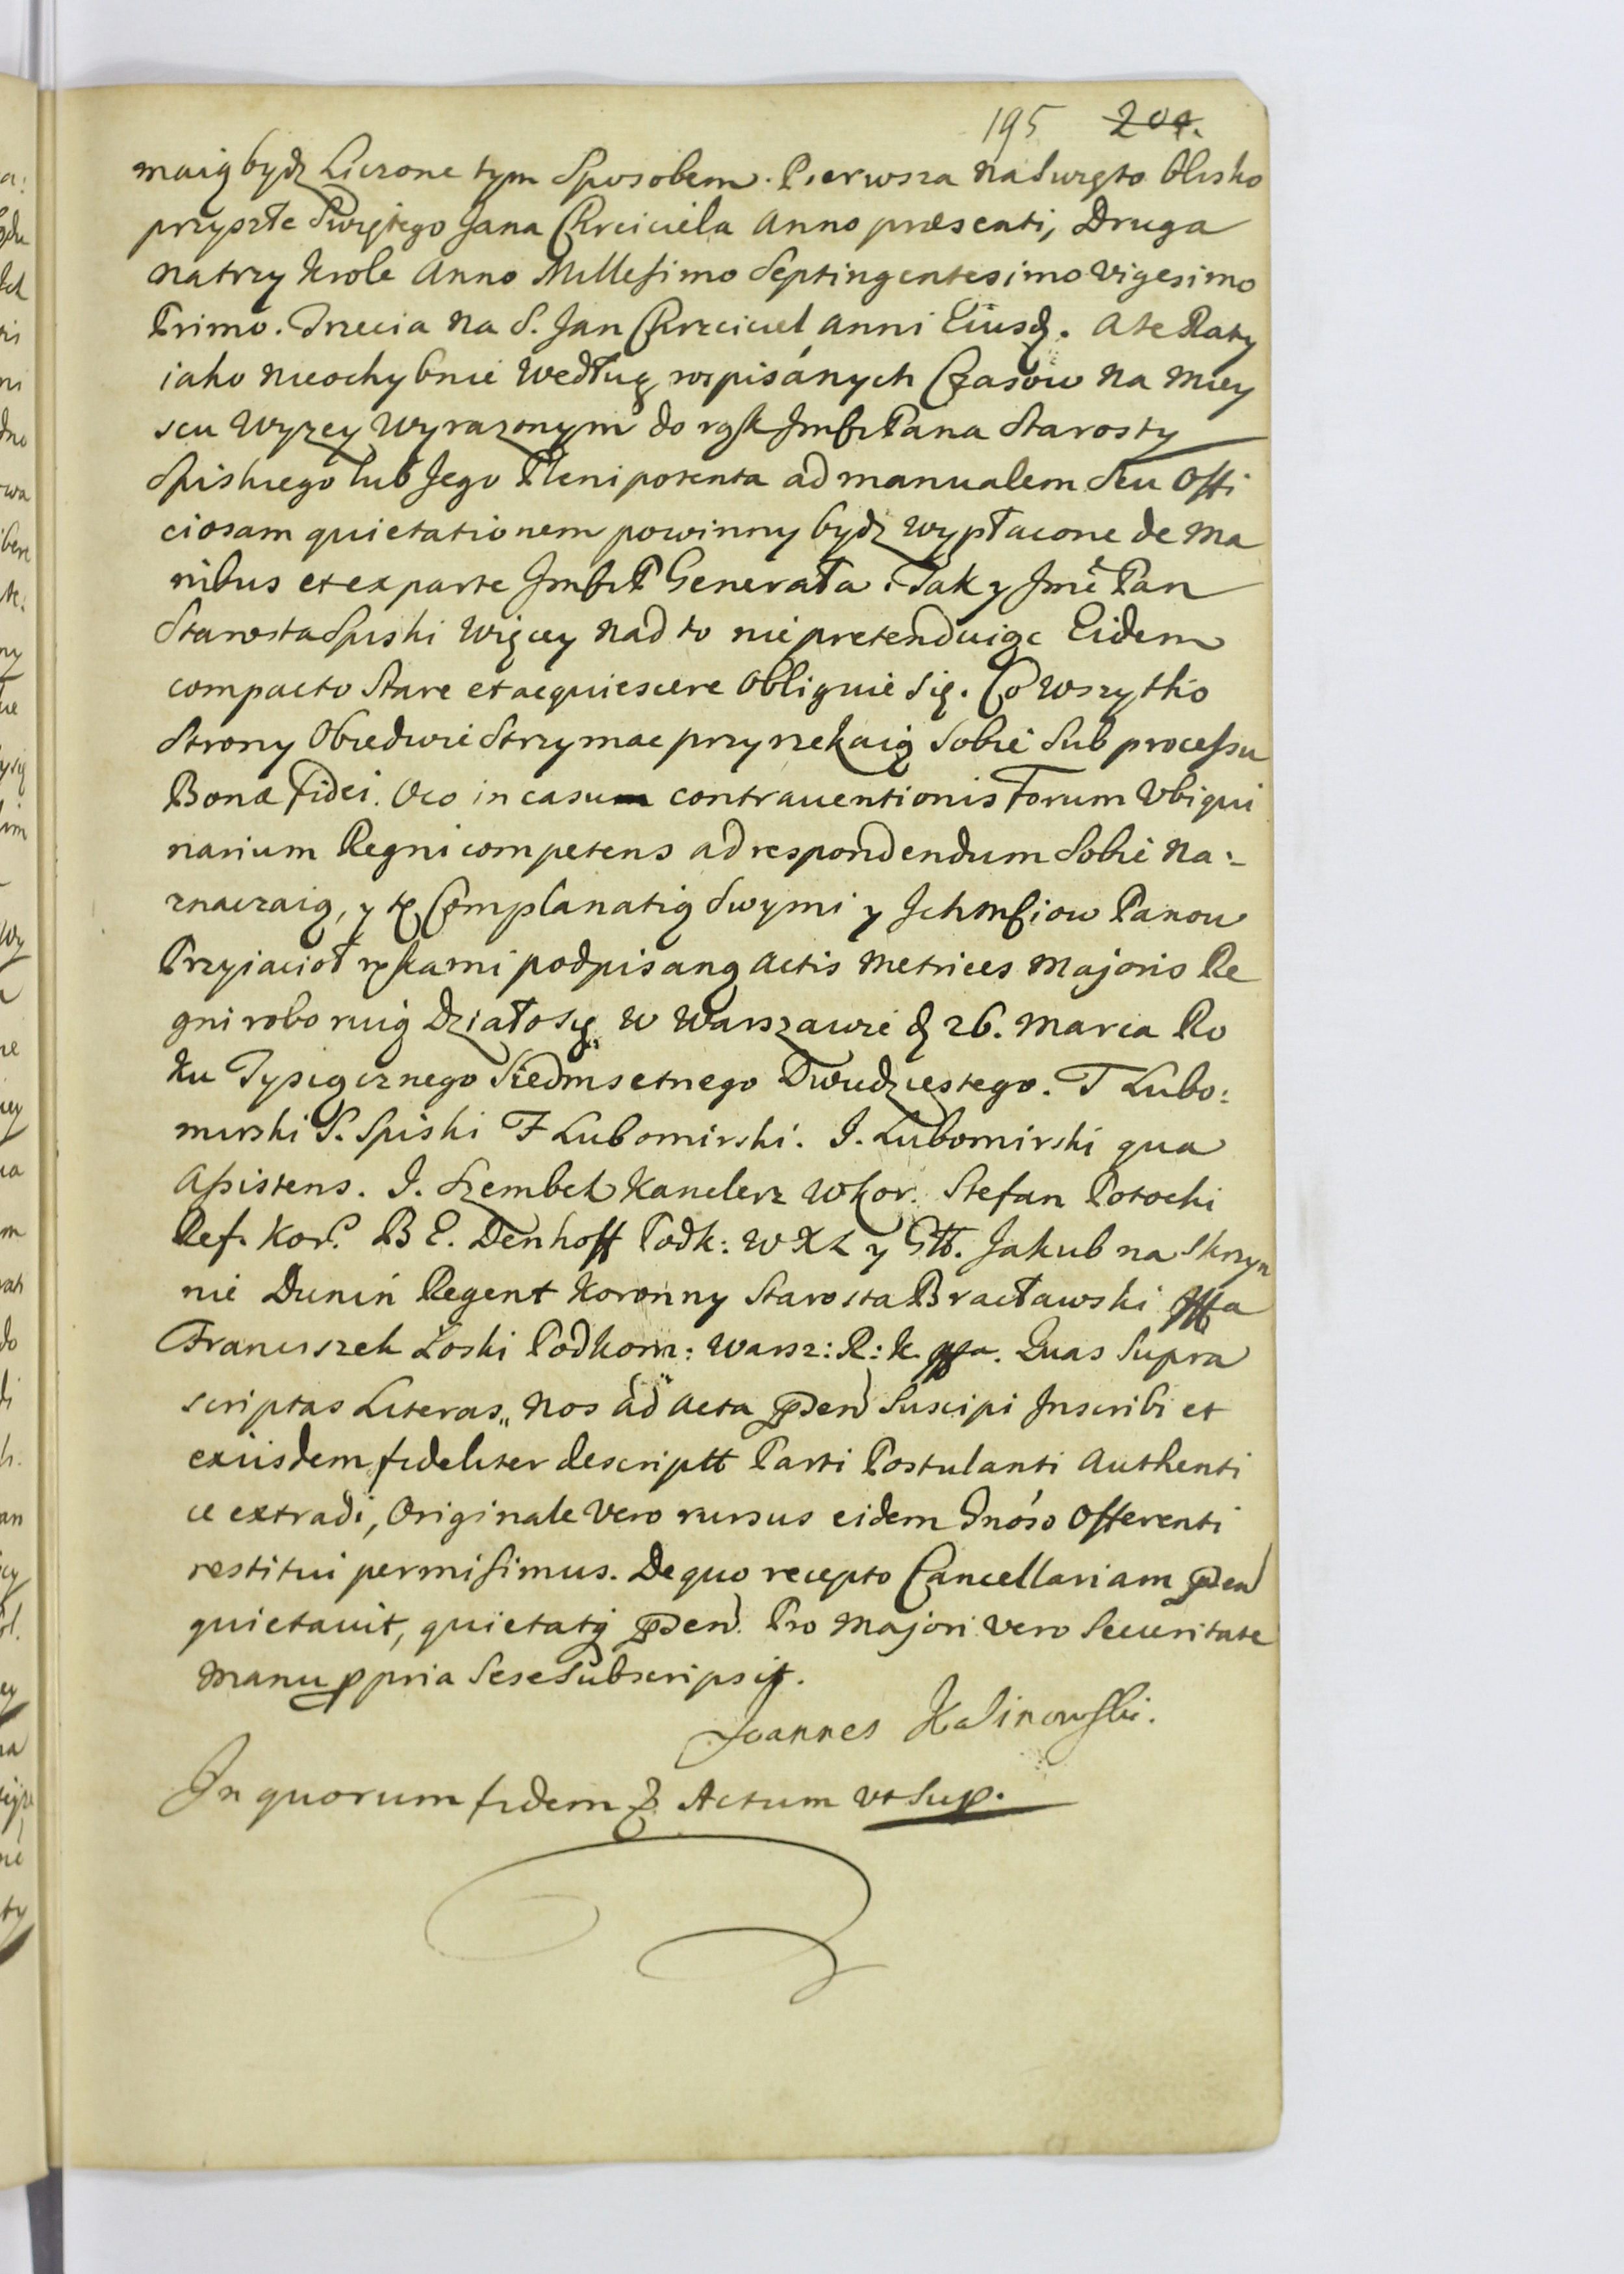 195 204.
maią bydz Liczone tym Sposobem. Pierwsza na Swięto blisko
przyszłe Swiętego Jana Chrciciela Anno præsenti, Druga
na trzy Krole Anno Millesimo Septingentesimo Vigesimo
Primo. Trzecia na S. Jan Chrzciciel anni Eiusd. A te Raty
iako nieochybnie Według rospisánych Czasow na miey
scu Wyzey Wyrazonym do rąk Pana Starosty
Spiskiego lub Jego Plenipotenta ad manualem Seu Offi
ciosam quietationem powinny bydz wypłacone de ma
nibus et ex parte P Generała. Tak y Jmć Pan
Starosta Spiski Więcey nad to nie pretenduiąc Eidem
compacto Stare et acquiescere Obliguie Się. Co Wszytko
Strony Obiedwie Strzymac przyrzekaią Sobie Sub processu
Bonæ fidei. Oco in casum contrauentionis Forum Vbiqui
narium Regni competens ad respondendum Sobie na:
znaczaią, y tę Complanatią Swymi y Panow
Przyiacioł rękami podpisaną Actis Metrices Majoris Re
gni roboruią Działosię w Warszawie d 26. Marca Ro
ku Tysiącznego Siedmsetnego Dwudziestego. T Lubo:
mirski S. Spiski F Lubomirski. J. Lubomirski qua
Assistens. J. Szembek Kanclerz WKor. Stefan Potocki
Ref. Kor. B E. Denhoff Podk: W X L y Jakub na Skrzyn
nie Dunin Regent Koronny Starosta Bracławski
Franciszek Łoski Podkom: Warsz: R: K. Quas Supra
scriptas Literas,, Nos ad Acta Suscipi Inscribi et
exiisdem fideliter descriptt Parti Postulanti Authenti
ce extradi, Originale Vero rursus eidem Offerenti
restitui permisimus. De quo recepto Cancellariam
quietauit, quietatq Pro Majori Vero Securitate
Manu ppria Sese Subscripsit.
Joannes Kalinowski.
In quorum fidem Actum Vt Sup.